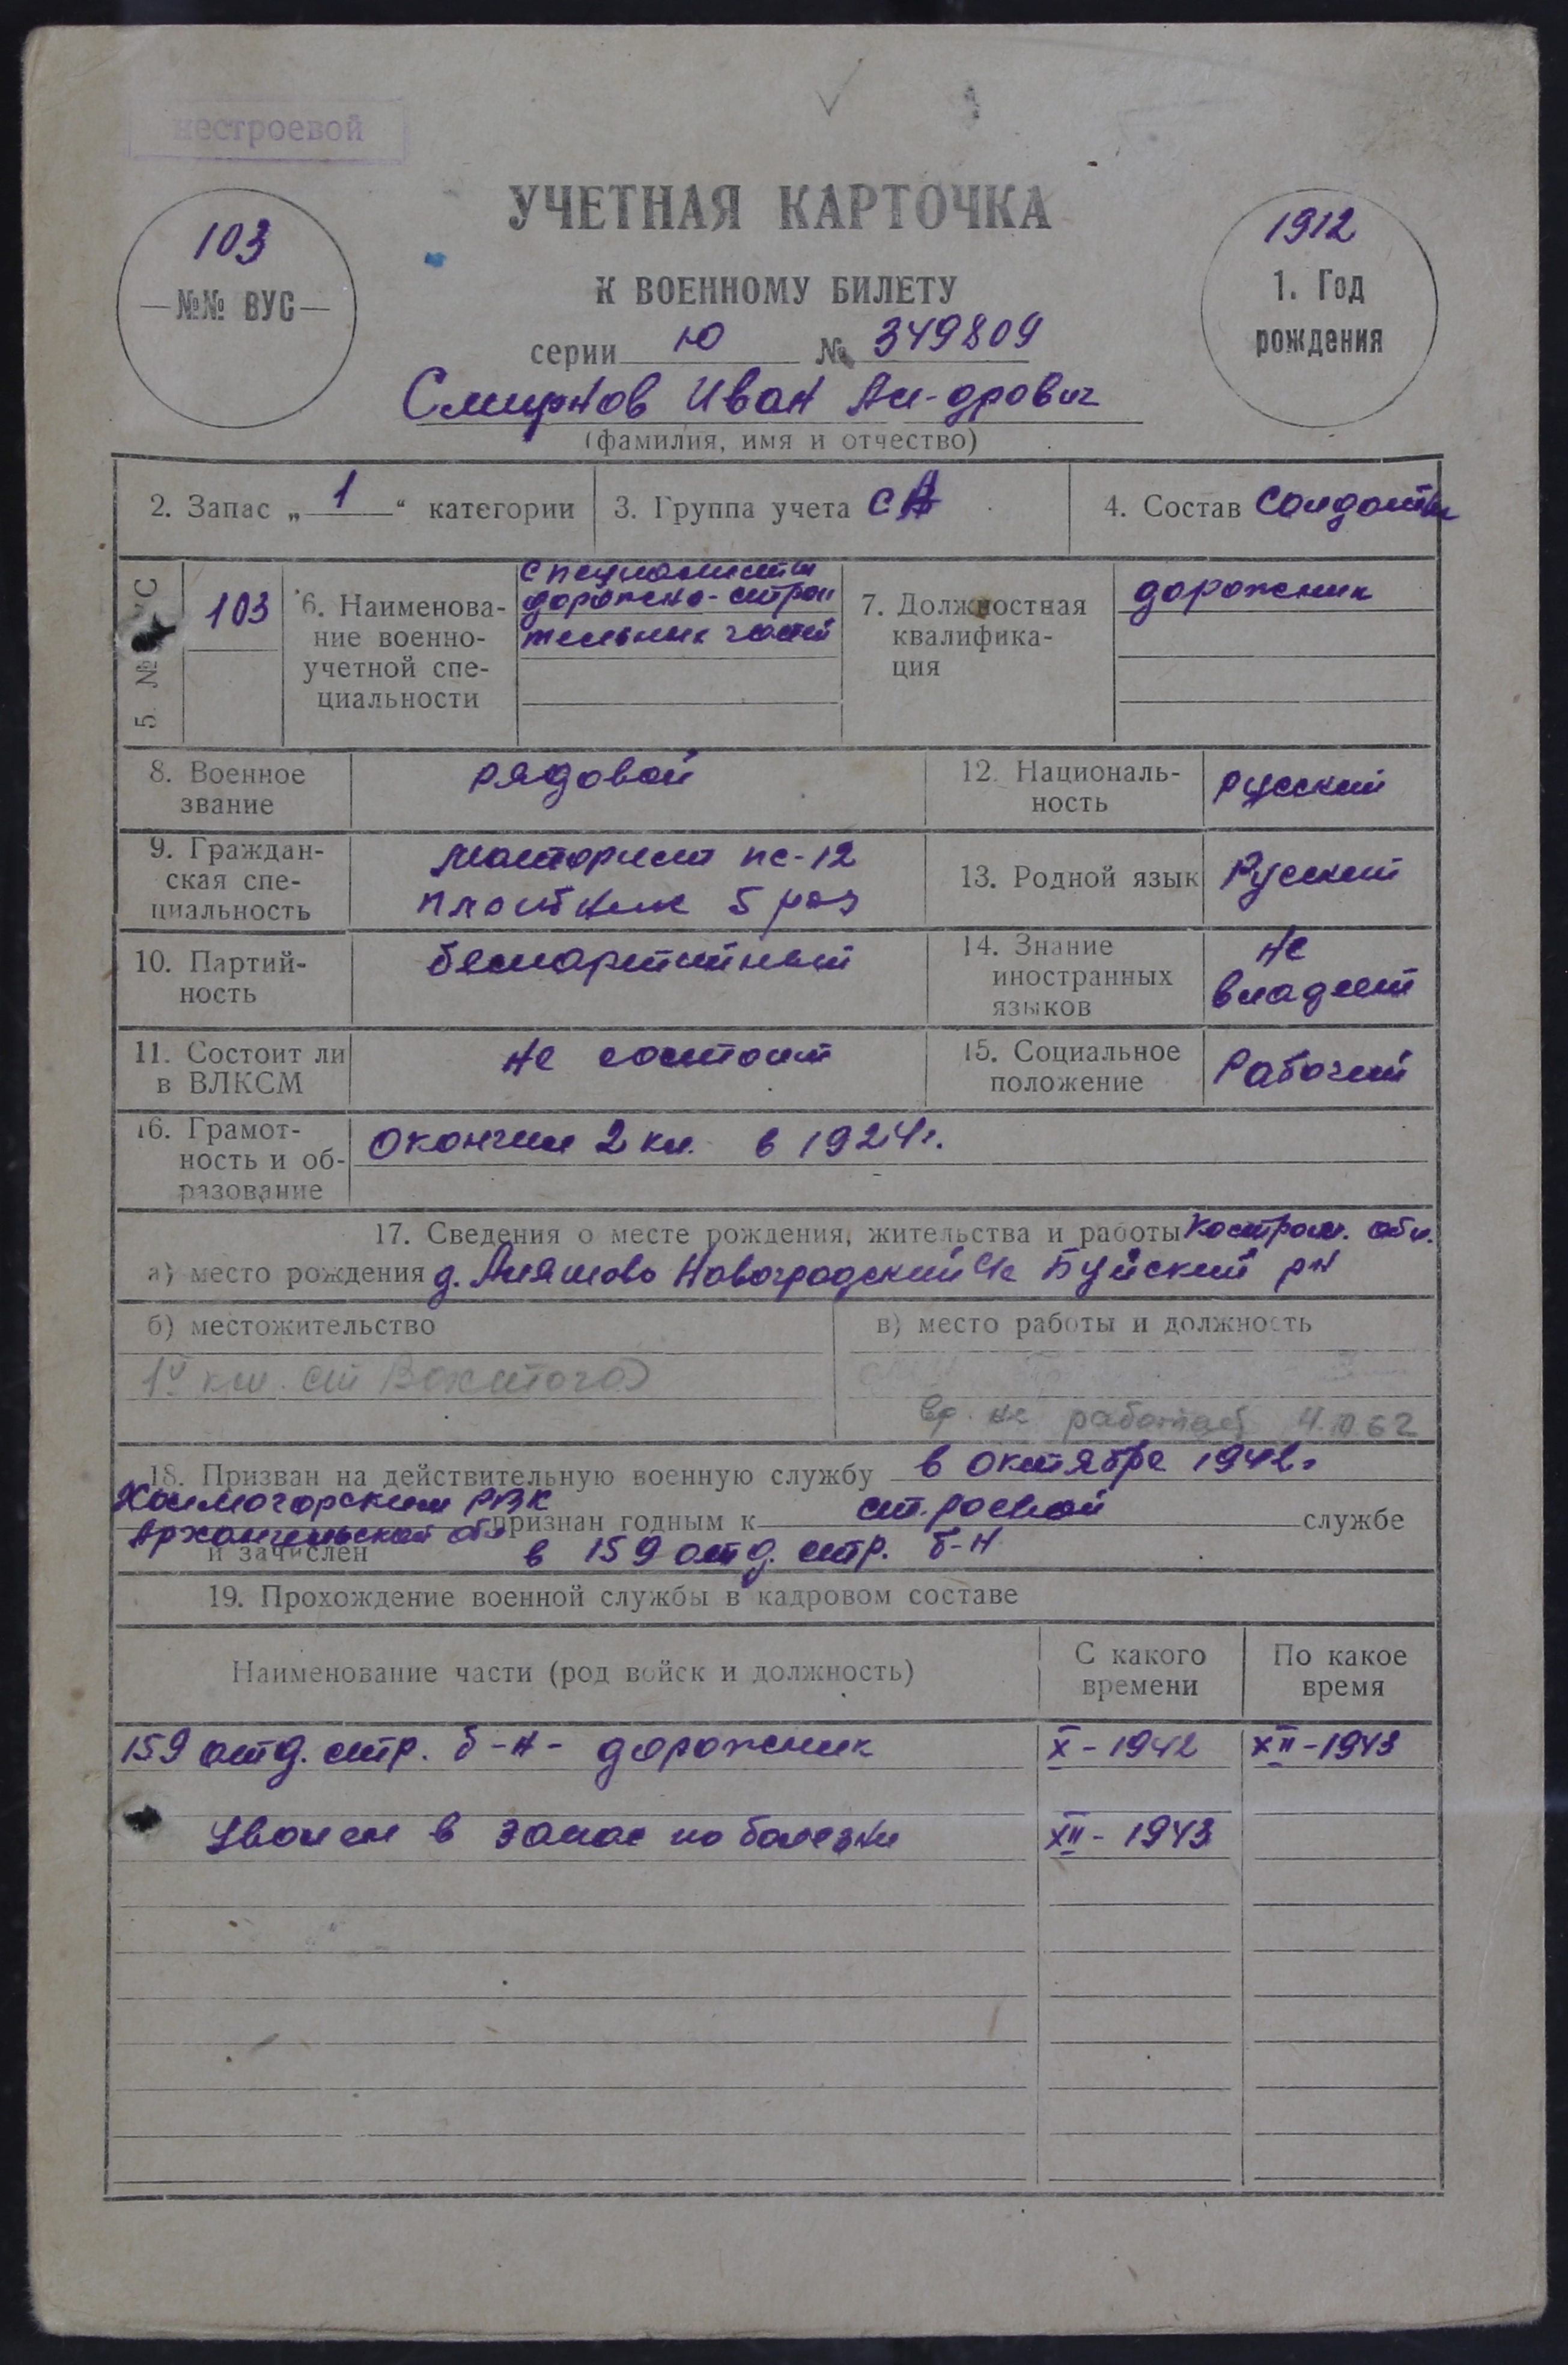 нестроевой
УЧЕТНАЯ КАРТОЧКА
К ВОЕННОМУ БИЛЕТУ
серии Ю № 349809
103
—№№ ВУС—
1912
1. Год
рождения
Смирнов Иван
(фамилия, имя и отчество)
2. Запас „ 1 “ категории
3. Группа учета СА
4. Состав Солдаты
5. № ВУС
103
6. Наименова-
ние военно-
учетной спе-
циальности
специалисты
дорожно-строи
тельных частей
7. Должностная
квалифика-
ция
дорожник
8. Военное
звание
рядовой
12. Националь-
ность
русский
9. Граждан-
ская спе-
циальность
моторист пс-12
плотник 5 раз
13. Родной язык
Русский
10. Партий-
ность
беспартийный
14. Знание
иностранных
языков
не
владеет
11. Состоит ли
в ВЛКСМ
не состоит
15. Социальное
положение
Рабочий
16. Грамот-
ность и об-
разование
Окончил 2 кл. в 1924г.
17. Сведения о месте рождения, жительства и работы Костром. обл.
а) место рождения д. Новоградский с/с Буйский рн
б) местожительство
в) место работы и должность
км. ст Вохтога
вр. не работает 62
18. Призван на действительную военную службу в октябре 1942г
Холмогорским РВК
Архангельской обл признан годным к строевой службе
и зачислен в 159 отд. стр. б-н
19. Прохождение военной службы в кадровом составе
Наименование части (род войск и должность)
С какого
времени
По какое
время
159 отд. стр. б-н- дорожник X-1942 XII-1943
Уволен в запас по болезни XII-1943